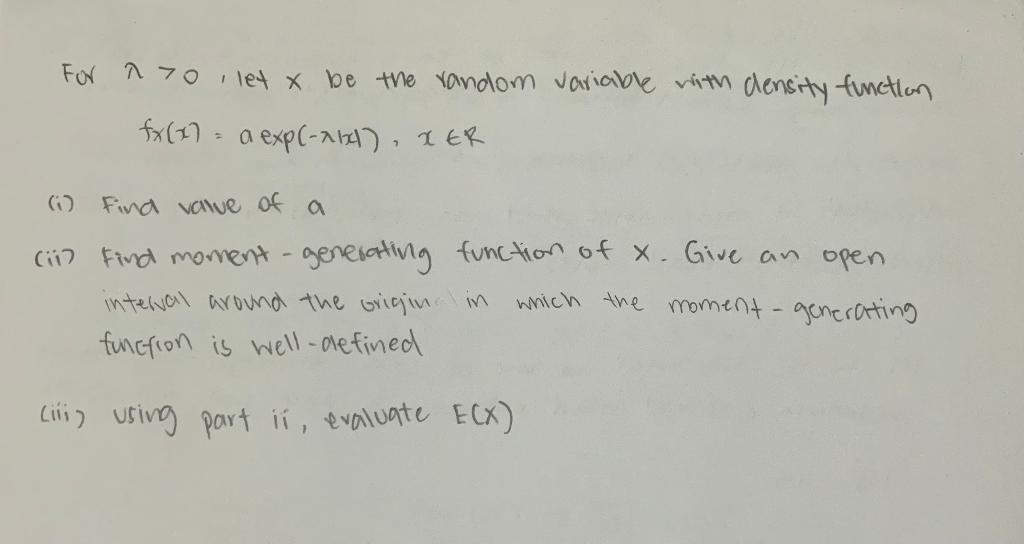 For λ > 0, let x be the random variable with density function
fx(x) = a exp(-λ|x|), x ∈ R
(i) Find value of a
(ii) Find moment-generating function of x. Give an open
interval around the origin in which the moment-generating
function is well-defined
(iii) using part ii, evaluate E(X)